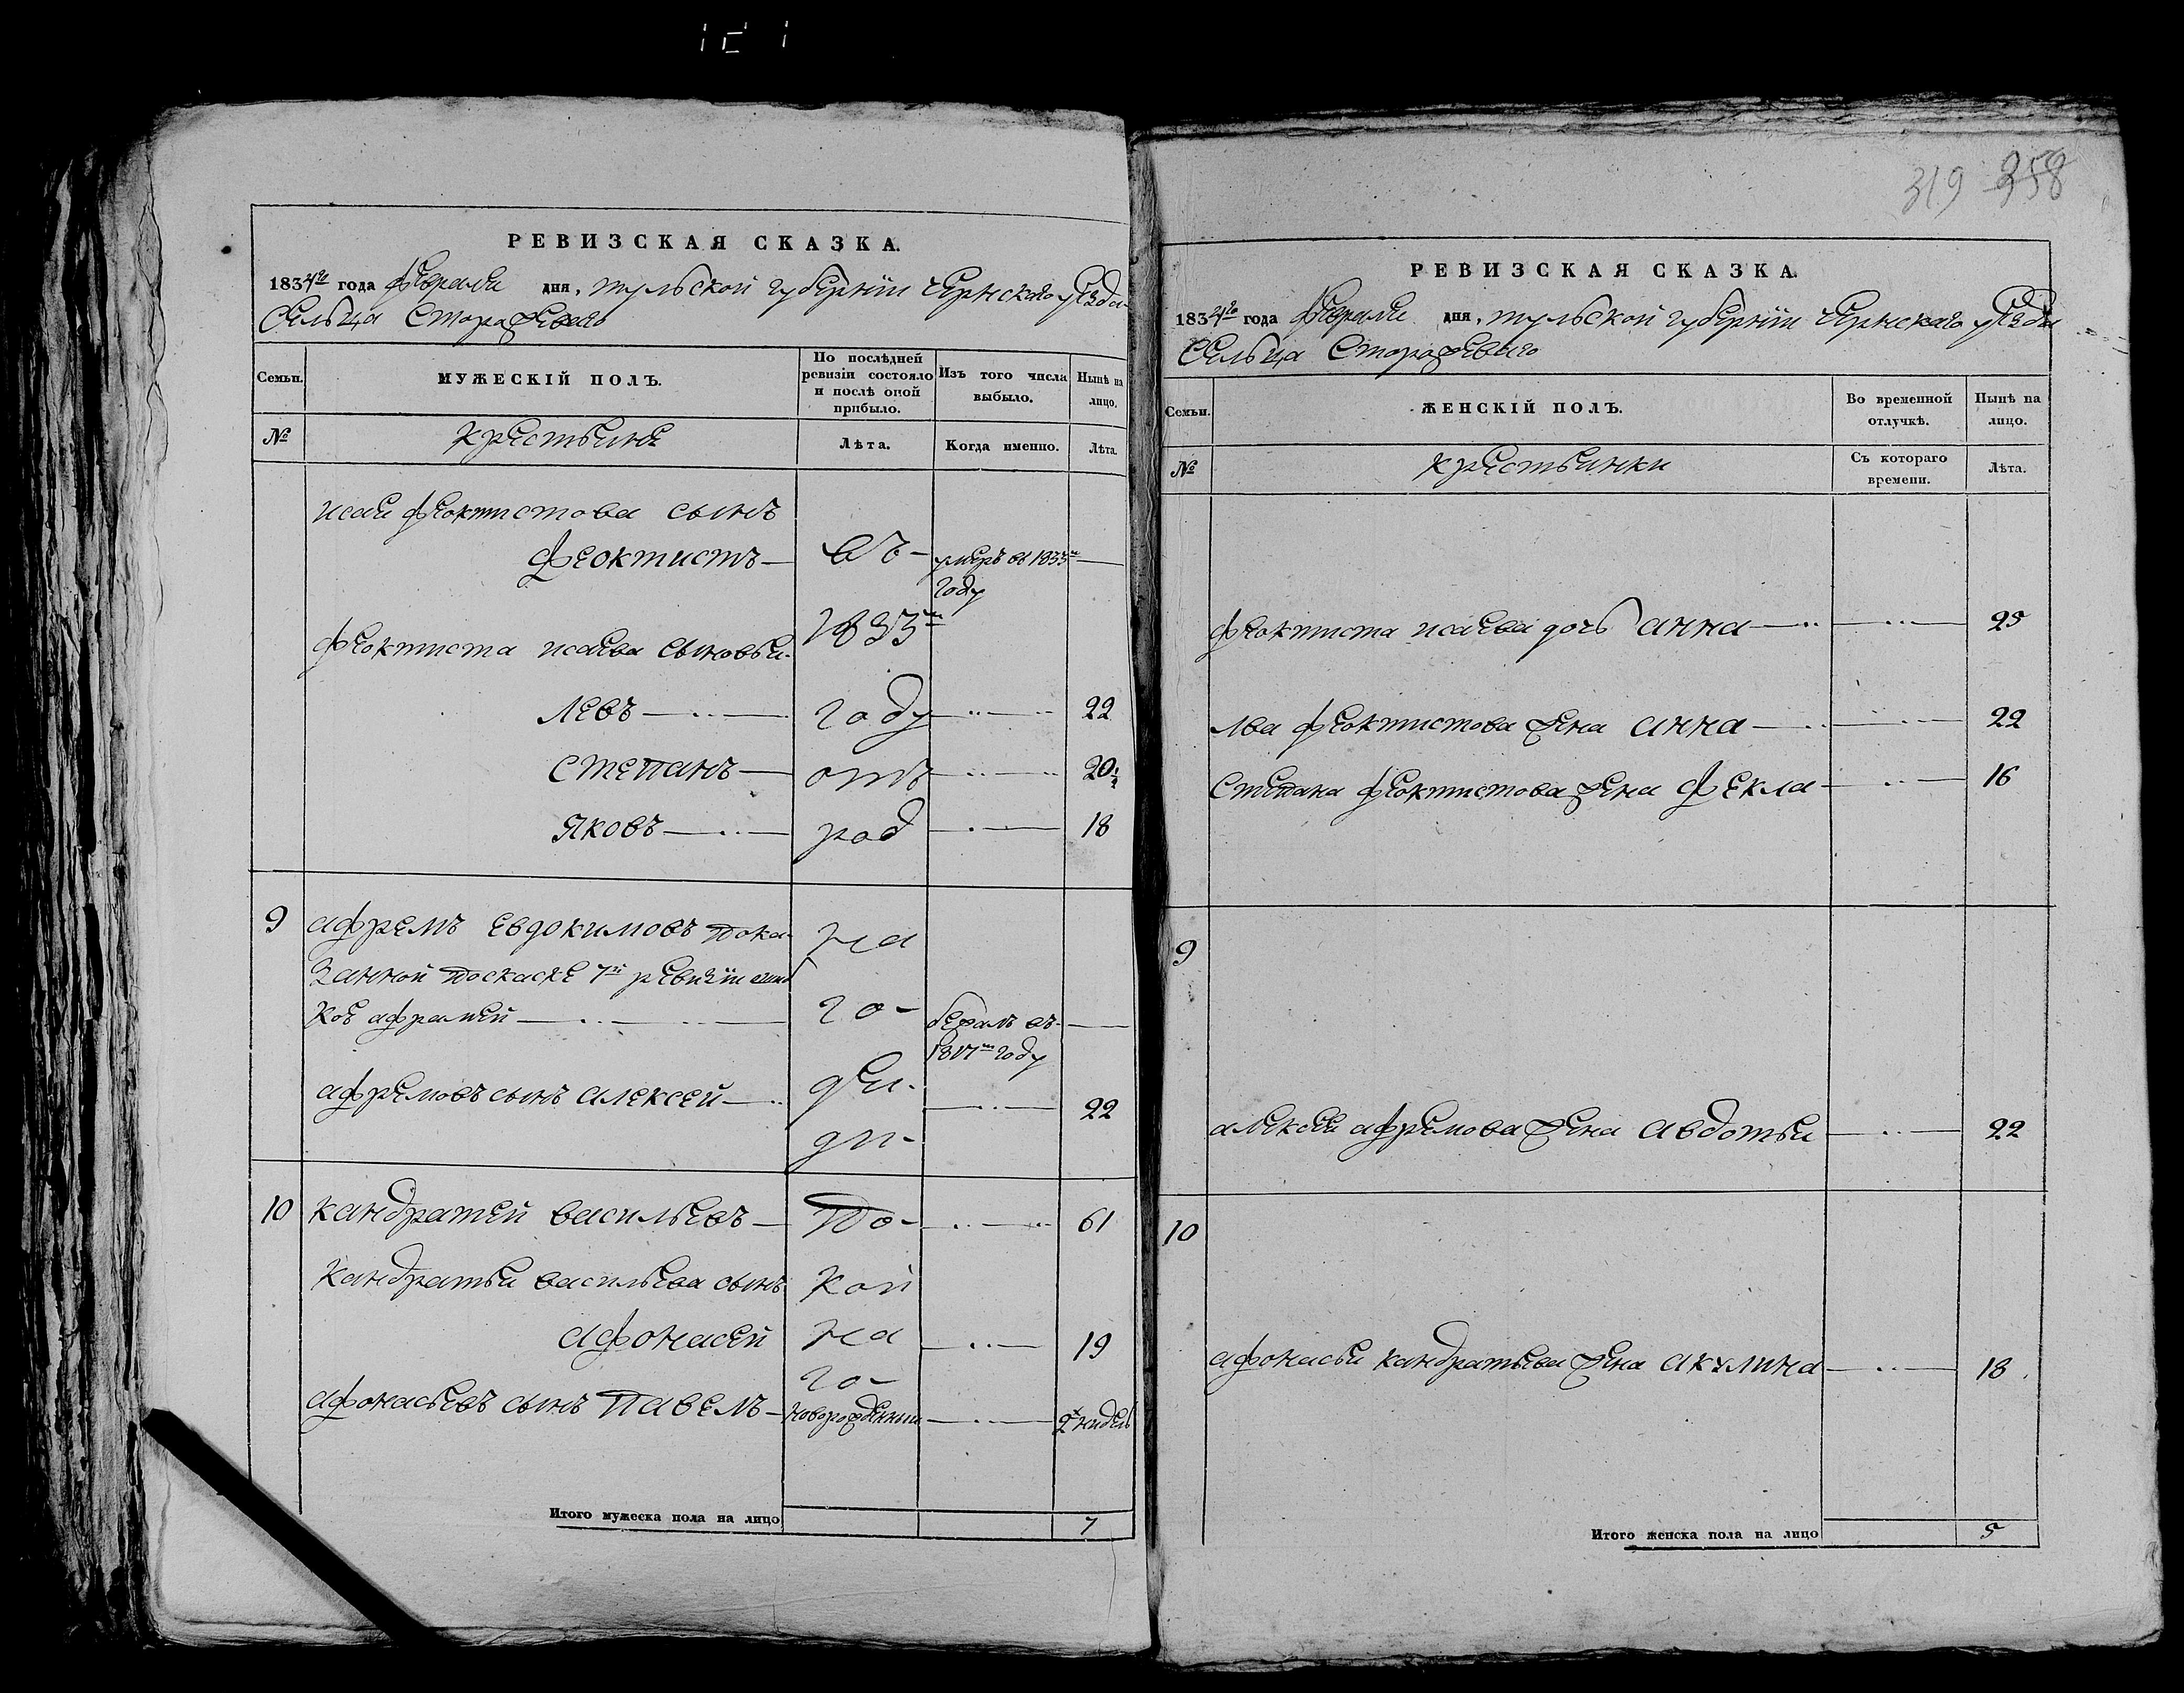 319 358
РЕВИЗСКАЯ СКАЗКА.
1834го года февраля дня, тульской губернiи чернского уѣзда
Сельца Сторожеваго
Семьи.
МУЖЕСКIЙ ПОЛЪ.
По послѣдней ревизiи состояло и послѣ оной прибыло.
Изъ того числа выбыло.
Нынѣ на лицо.
№
крестьяне
Лѣта.
Когда именно.
Лѣта.
исаи феоктистова сынъ
феоктистъ — въ — умеръ въ 1833м —
году
феоктиста исаева сыновья 1833м
левъ — году — 22
степанъ — отъ — 20 1/2
яковъ — род — 18
9 афремъ евдокимовъ пока- на
занной поскаске 7й ревизiи
афремей — го- бежалъ въ —
1817м году
афремовъ сынъ алексей — ден- — 22
ди-
10 кандратей васильевъ — по- — 61
кандратья васильева сынъ кой
афонасей на — 19
го-
афонасьевъ сынъ павелъ — новорожденный — 2х нидель
Итого мужеска пола на лицо 7
РЕВИЗСКАЯ СКАЗКА.
1834го года февраля дня, тульской губернiи чернскаго уѣзда
Сельца Сторожеваго
Семьи.
ЖЕНСКIЙ ПОЛЪ.
Во временной отлучкѣ.
Нынѣ на лицо.
№
крестьянки
Съ котораго времени.
Лѣта.
феоктиста исаева дочь анна — 25
лва феоктистова жена анна — 22
степана феоктистова жена фекла — 16
9
алексея афремова жена авдотья — 22
10
афонасья кандратьева жена акулина — 18
Итого женска пола на лицо 5